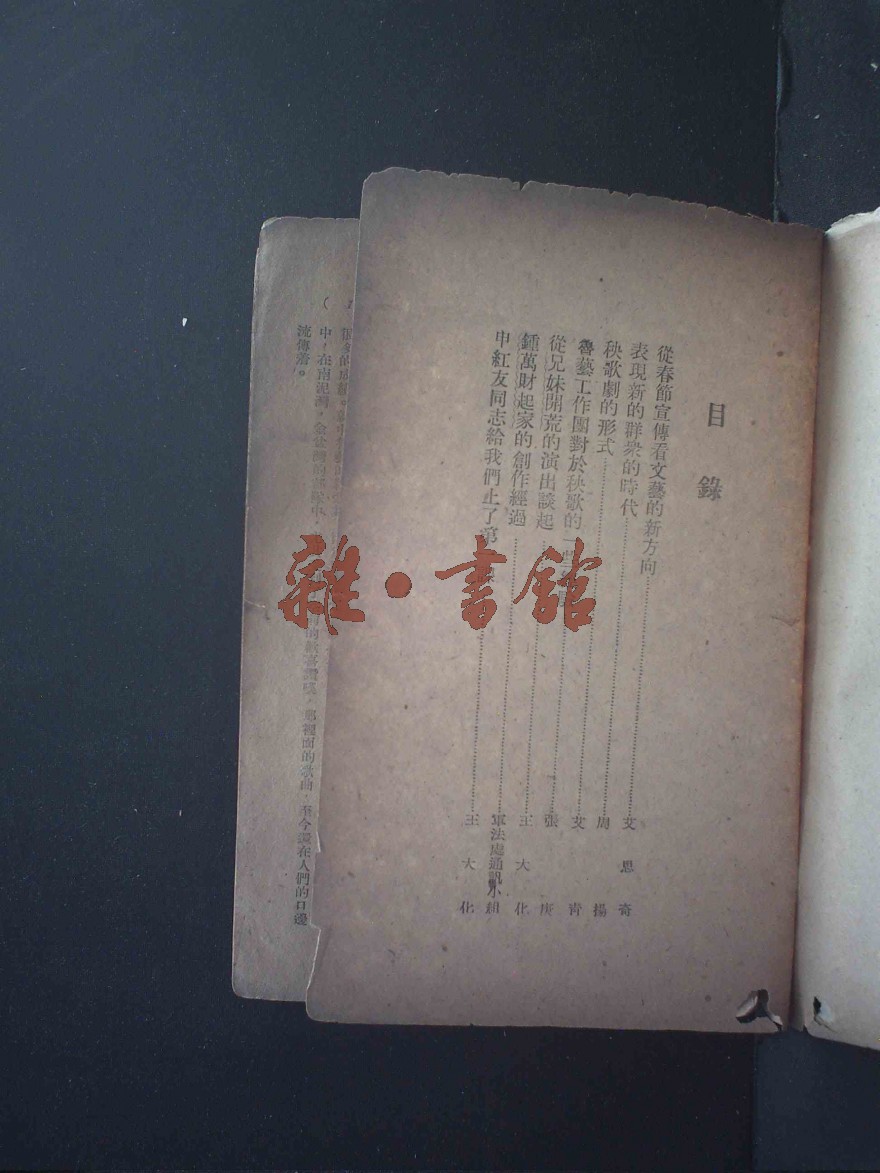 目錄
從春節宣傳看文藝的新方向……艾思奇
表現新的群衆的時代……周揚
秧歌劇的形式……艾青
魯藝工作團對於秧歌的一些……張庚
從兄妹開荒的演出談起……王大化
鍾萬財起家的創作經過……軍法處通訊小組
申紅友同志給我們上了第一課……王大化
中，在南泥灣，金盆灣的部隊中，
那裡面的歌曲，至今還在人們的口邊
流傳着。
雜·書館